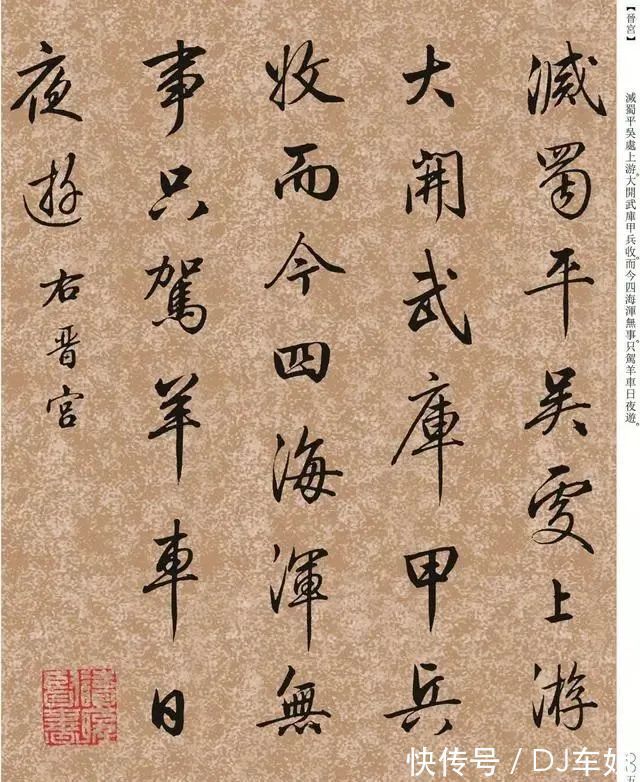 【晉宮】
滅蜀平吳處上游。大開武庫甲兵收。而今四海渾無事。只駕羊車日夜遊。
滅蜀平吳處上游
大開武庫甲兵
收而今四海渾無
事只駕羊車日
夜遊右晉宮
快传号/DJ车